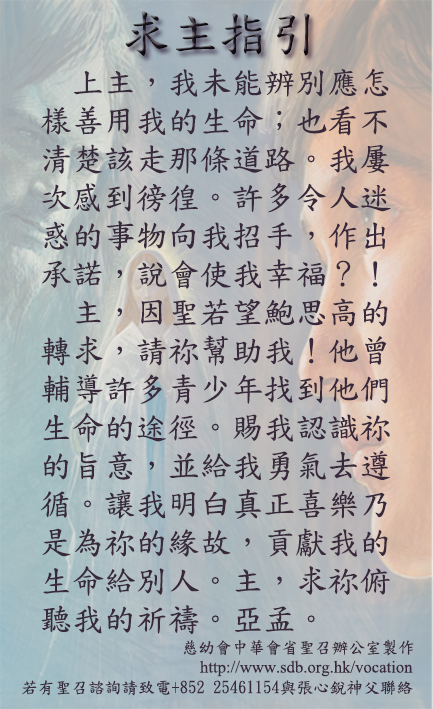 求主指引
上主，我未能辨別應怎
樣善用我的生命；也看不
清楚該走那條道路。我屢
次感到徬徨。許多令人迷
惑的事物向我招手，作出
承諾，說會使我幸福？！
主，因聖若望鮑思高的
轉求，請祢幫助我！他曾
輔導許多青少年找到他們
生命的途徑。賜我認識祢
的旨意，並給我勇氣去遵
循。讓我明白真正喜樂乃
是為祢的緣故，貢獻我的
生命給別人。主，求祢俯
聽我的祈禱。亞孟。
慈幼會中華會省聖召辦公室製作
http://www.sdb.org.hk/vocation
若有聖召諮詢請致電+852 25461154與張心銳神父聯絡